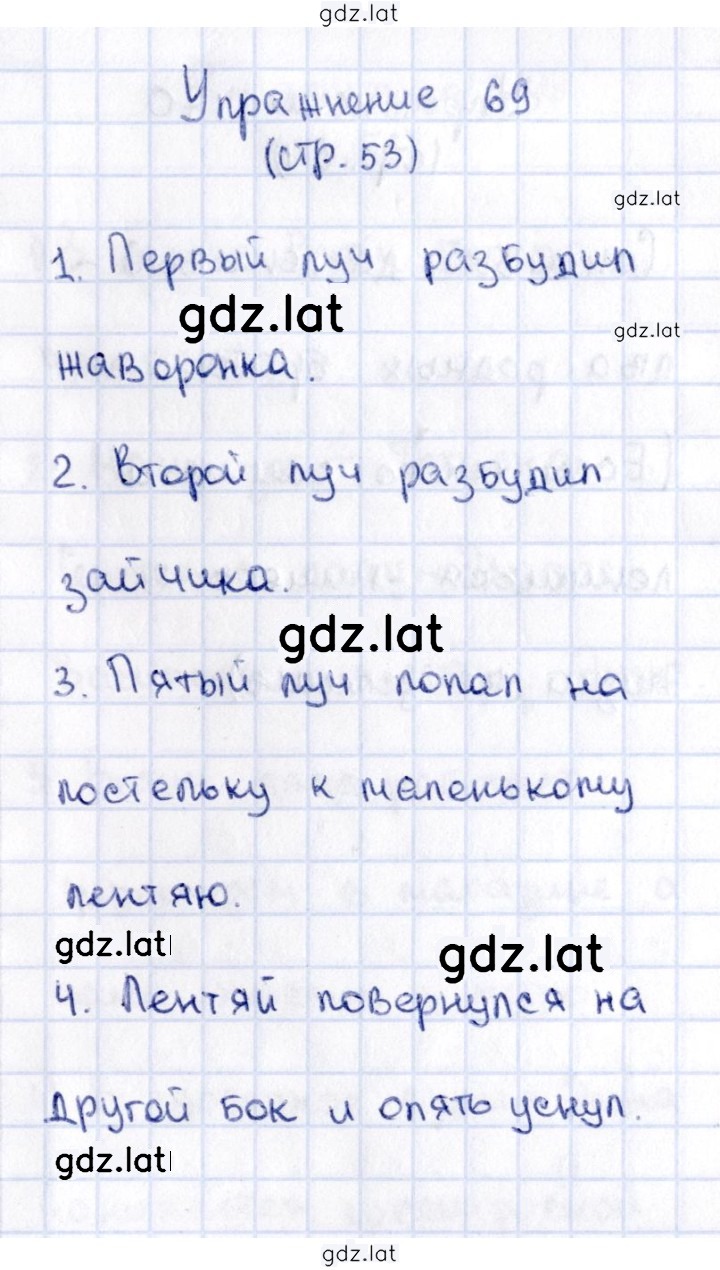 gdz.lat
Упражнение 69
(стр. 53)
gdz.lat
1. Первый луч разбудил
gdz.lat
gdz.lat
жаворонка.
2. Второй луч разбудил
зайчика.
gdz.lat
3. Пятый луч попал на
постельку к маленькому
лентяю.
gdz.lat
gdz.lat
4. Лентяй повернулся на
другой бок и опять уснул.
gdz.lat
gdz.lat